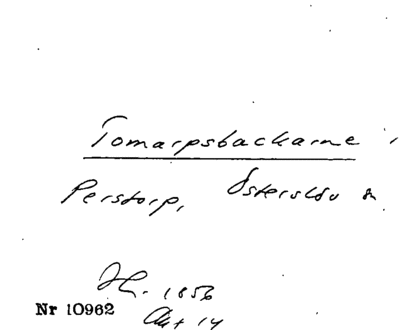 Tomarpsbackarne
Perstorp, Österslöv sn
H. 1856
Akt 14
Nr 10962